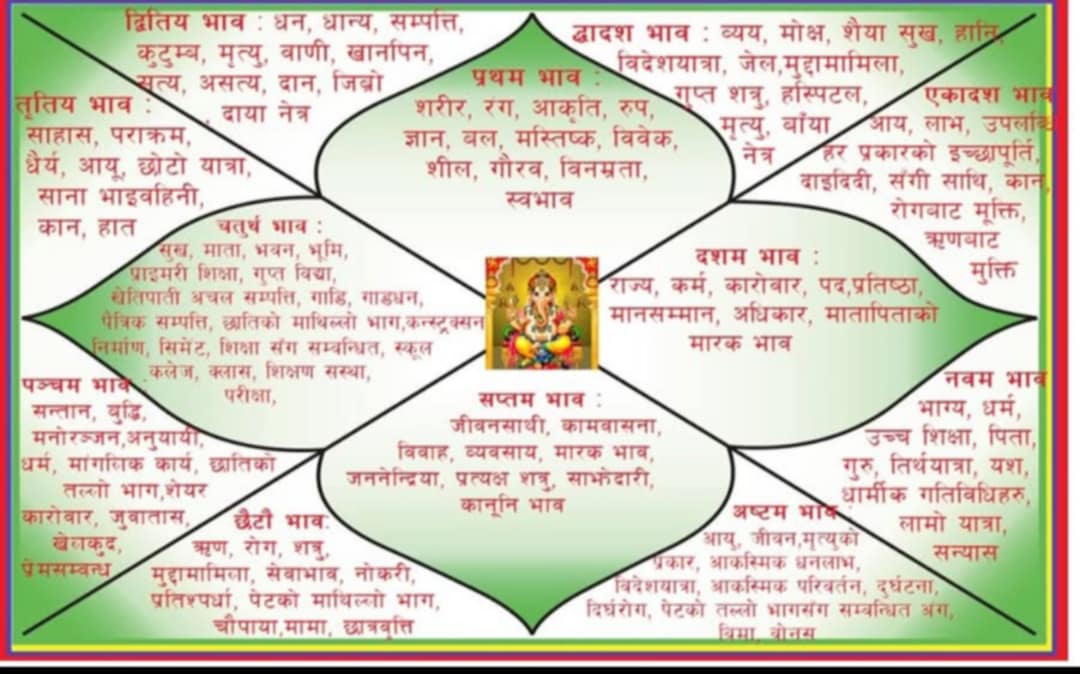 द्वितिय भाव : धन, धान्य, सम्पत्ति,
कुटुम्ब, मृत्यु, वाणी, खानपिन,
सत्य, असत्य, दान, जिब्रो
दाया नेत्र
प्रथम भाव :
शरीर, रंग, आकृति, रुप,
ज्ञान, बल, मस्तिष्क, विवेक,
शील, गौरव, विनम्रता,
स्वभाव
द्वादश भाव : व्यय, मोक्ष, शैया सुख, हानि,
विदेशयात्रा, जेल,मुद्दामामिला,
गुप्त शत्रु, हस्पिटल,
मृत्यु, बाँया
नेत्र
एकादश भाव
आय, लाभ, उपलब्धि
हर प्रकारको इच्छापूर्ति,
दाइदिदी, सँगी साथि, कान,
रोगबाट मूक्ति,
ऋणबाट
मुक्ति
तृतिय भाव :
साहास, पराक्रम,
धैर्य, आयू, छोटो यात्रा,
साना भाइवहिनी,
कान, हात
चतुर्थ भाव :
सुख, माता, भवन, भूमि,
प्राइमरी शिक्षा, गुप्त विद्या,
खेतिपाती अचल सम्पत्ति, गाडि, गाडधन,
पैत्रिक सम्पत्ति, छातिको माथिल्लो भाग,कन्स्ट्रक्सन
निर्माण, सिमेंट, शिक्षा सँग सम्बन्धित, स्कूल
कलेज, क्लास, शिक्षण सस्था,
परीक्षा,
दशम भाव :
राज्य, कर्म, कारोवार, पद,प्रतिष्ठा,
मानसम्मान, अधिकार, मातापिताको
मारक भाव
पञ्चम भाव :
सन्तान, वुद्धि,
मनोरञ्जन,अनुयायी,
धर्म, मांगलिक कार्य, छातिको
तल्लो भाग,शेयर
कारोवार, जुवातास,
खेलकुद,
प्रेमसम्वन्ध
सप्तम भाव :
जीवनसाथी, कामवासना,
विवाह, व्यवसाय, मारक भाव,
जननेन्द्रिया, प्रत्यक्ष शत्रु, साझेदारी,
कानूनि भाव
नवम भाव
भाग्य, धर्म,
उच्च शिक्षा, पिता,
गुरु, तिर्थयात्रा, यश,
धार्मीक गतिविधिहरु,
लामो यात्रा,
सन्यास
छैटौ भाव:
ऋण, रोग, शत्रु,
मुद्दामामिला, सेवाभाव, नोकरी,
प्रतिश्पर्धा, पेटको माथिल्लो भाग,
चौपाया,मामा, छात्रवृत्ति
अष्टम भाव :
आयु, जीवन,मृत्युको
प्रकार, आकस्मिक धनलाभ,
विदेशयात्रा, आकस्मिक परिवर्तन, दुर्घटना,
दिर्घरोग, पेटको तल्लो भागसंग सम्बन्धित अंग,
विमा, वोनस